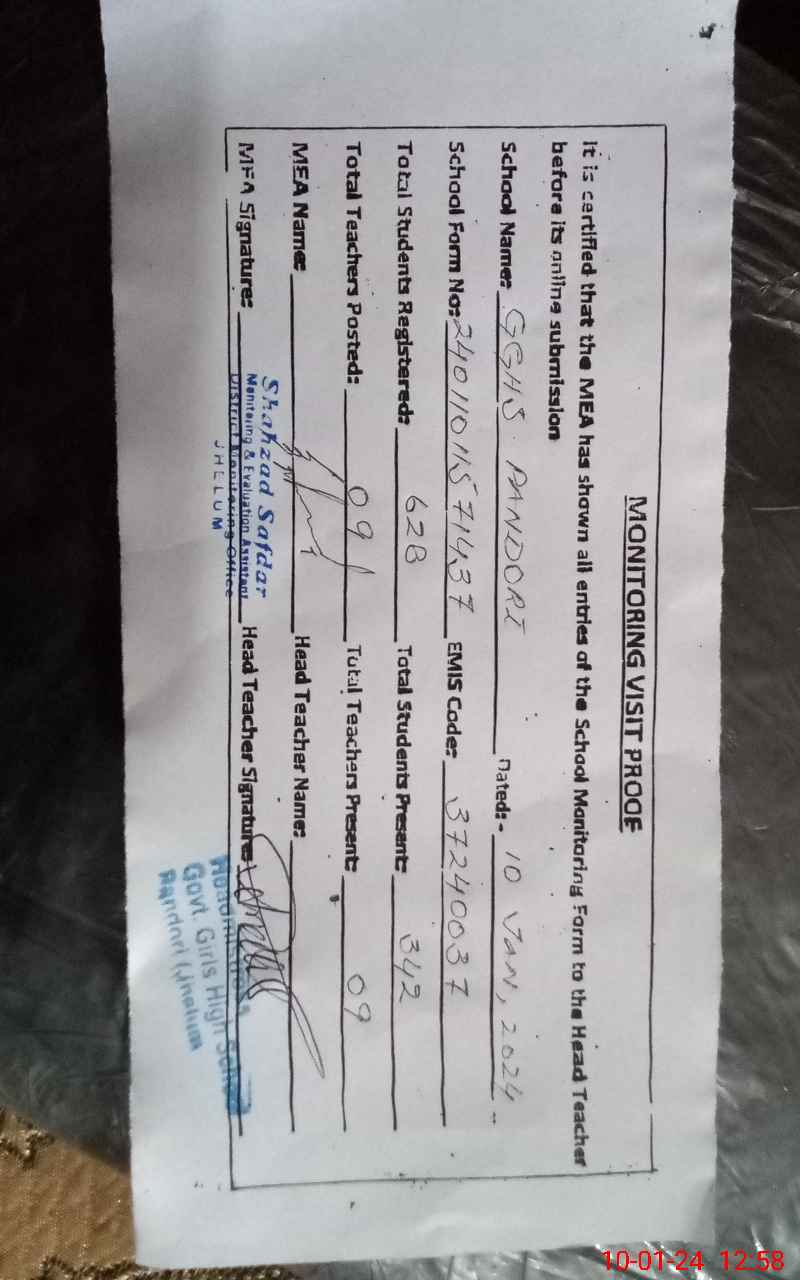 MONITORING VISIT PROOF
It is certified that the MEA has shown all entries of the School Monitoring Form to the Head Teacher
before its online submission
School Name: GGHS PANDORI Dated:- 10 JAN, 2024
School Form No: 24011011571437 EMIS Code: 37240037
Total Students Registered: 628 Total Students Present: 342
Total Teachers Posted: 09 Total Teachers Present: 09
MEA Name: Head Teacher Name:
MEA Signature: Head Teacher Signature:
Shahzad Safdar
Monitoring & Evaluation Assistant
District Monitoring Office
JHELUM
Headmistress
Govt. Girls High School
Pandori (Jhelum
10-01-24 12:58